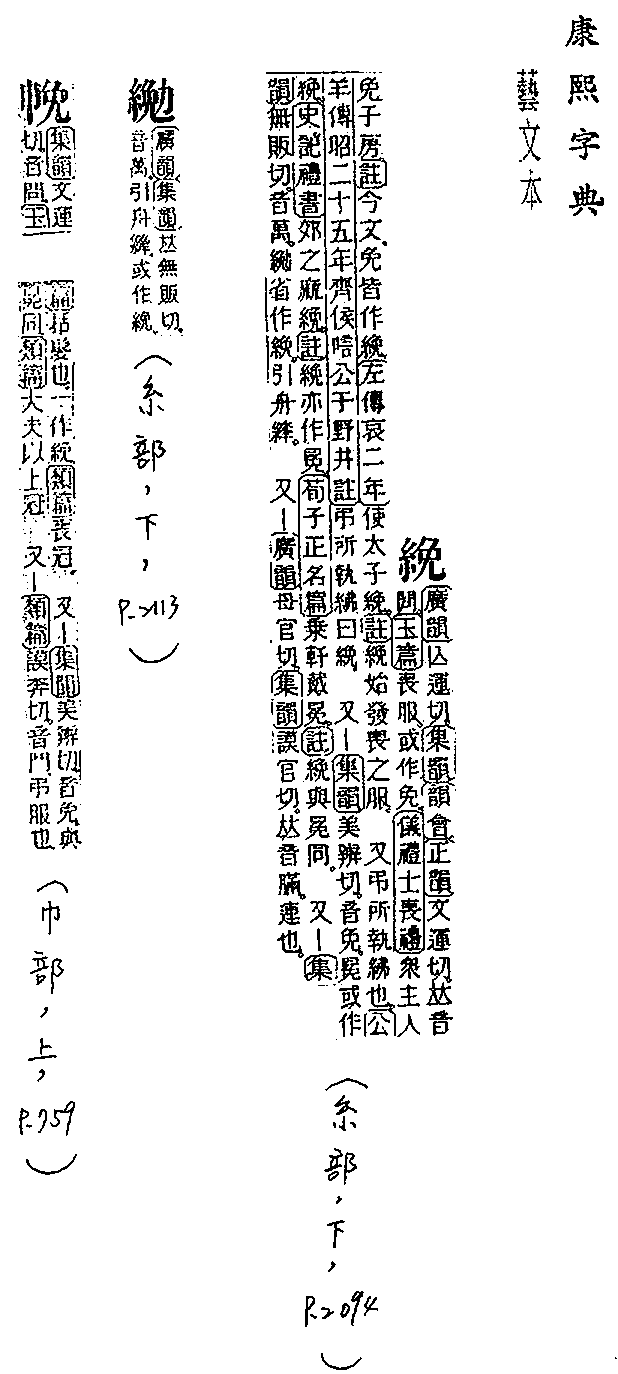 康熙字典
藝文本
絻
廣韻亾運切集韻韻會正韻文運切𠀤音
問玉篇喪服或作免儀禮士喪禮衆主人
免子房註今文免皆作絻左傳哀二年使太子絻註絻始發喪之服 又弔所執紼也公
羊傳昭二十五年齊侯唁公于野井註弔所執紼曰絻 又〡集韻美辨切音免冕或作
絻史記禮書郊之麻絻註絻亦作冕荀子正名篇乘軒戴冕註絻與冕同 又〡集
韻無販切音萬䋦省作絻引舟縴 又〡廣韻母官切集韻謨官切𠀤音瞞連也
(糸部,下,P.2094)
䋦
廣韻集韻𠀤無販切
音萬引舟縴或作絻
(糸部,下,P.2113)
㡈
集韻文運
切音問玉
篇括髮也一作絻類篇喪冠 又〡集韻美辨切音免與
冕同類篇大夫以上冠 又〡類篇謨奔切音門弔服也
(巾部,上,P.759)